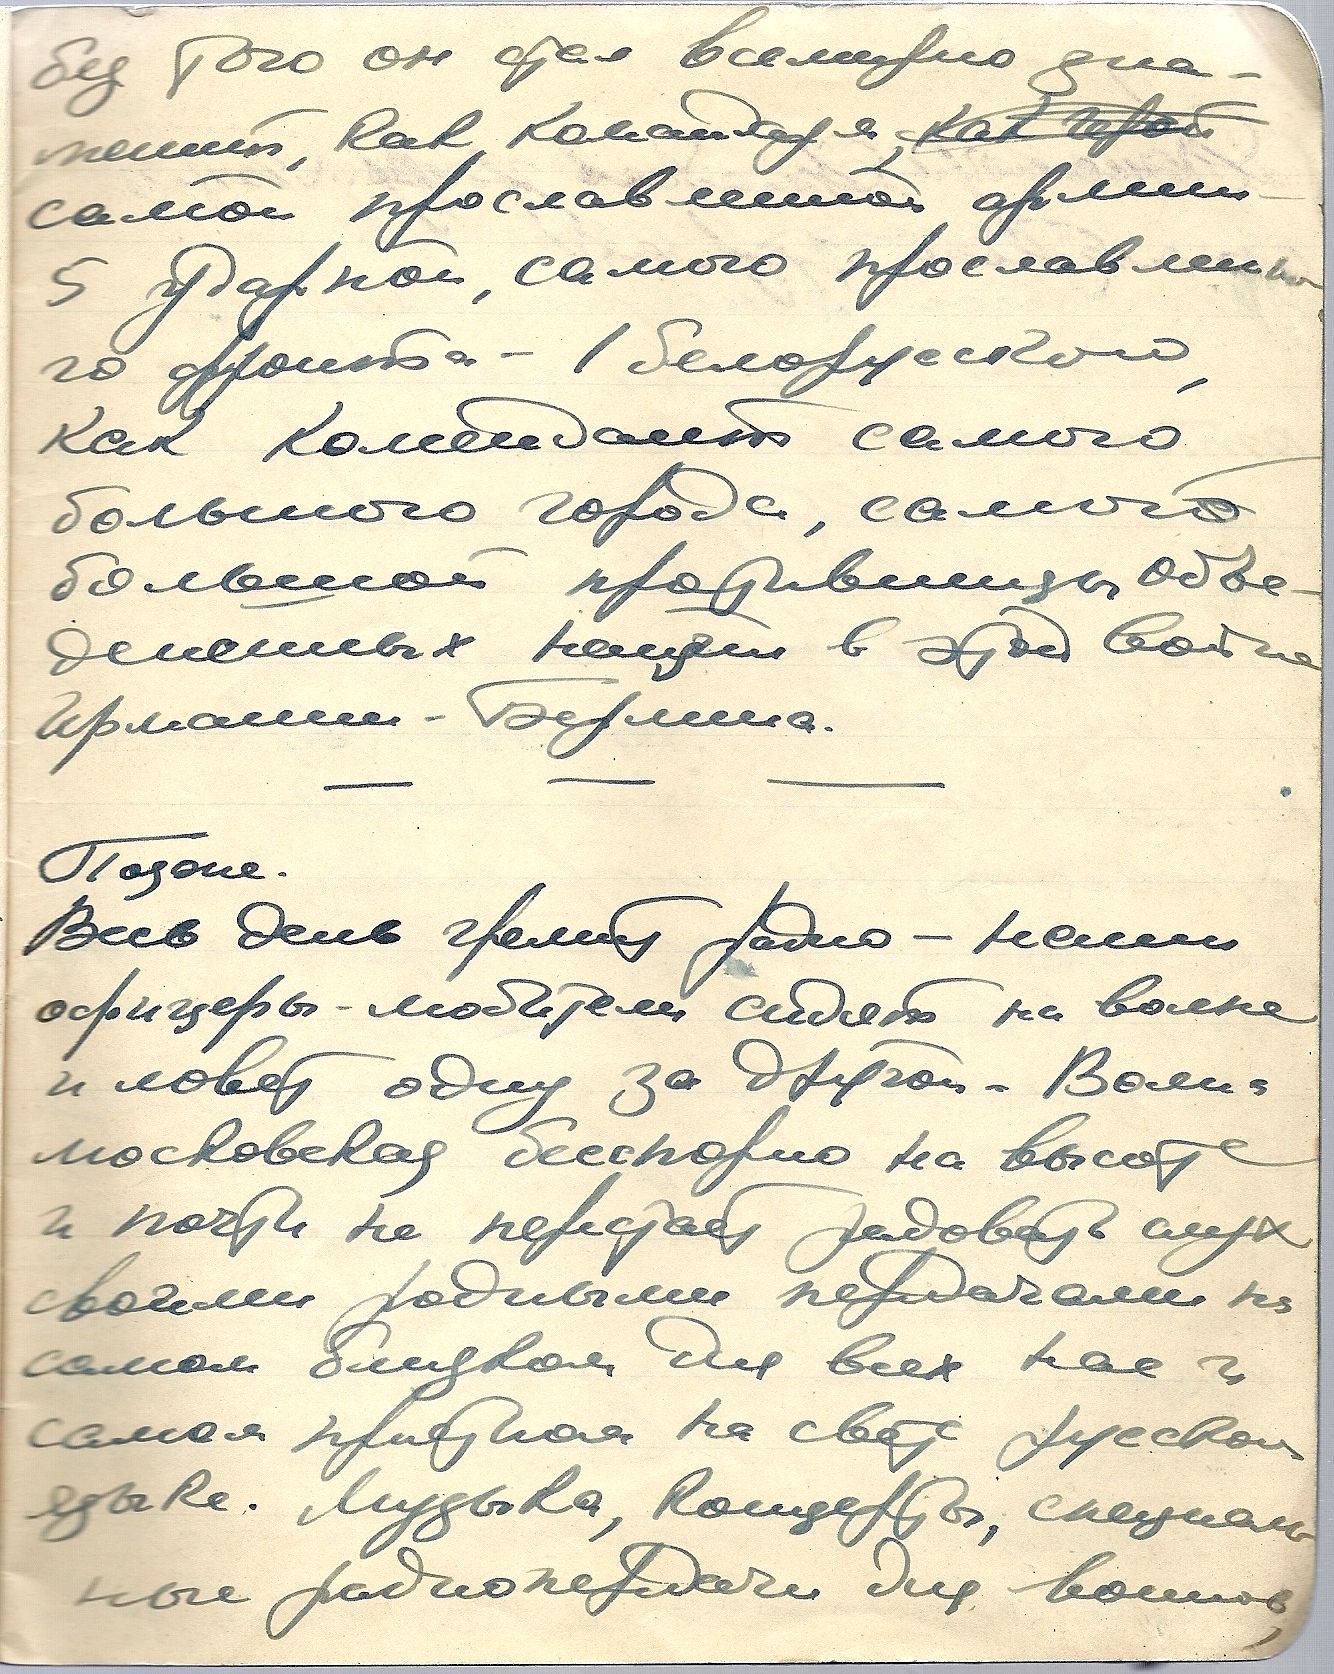 без того он стал всемирно зна-
менит, как командарм, как герой
самой прославленной армии -
5 ударной, самого прославленно-
го фронта - 1 белорусского,
как комендант самого
большого города, самого
большой противницы объе-
диненных наций в этой войне
Германии - Берлина.
Позже.
Весь день гремит радио - наши
офицеры-любители сидят на волне
и ловят одну за другой. Волна
московская бесспорно на высоте
и почти не перестает радовать слух
своими родными передачами на
самом близком для всех нас и
самом приятном на свете русском
языке. Музыка, концерты, специаль
ные радиопередачи для воинов,